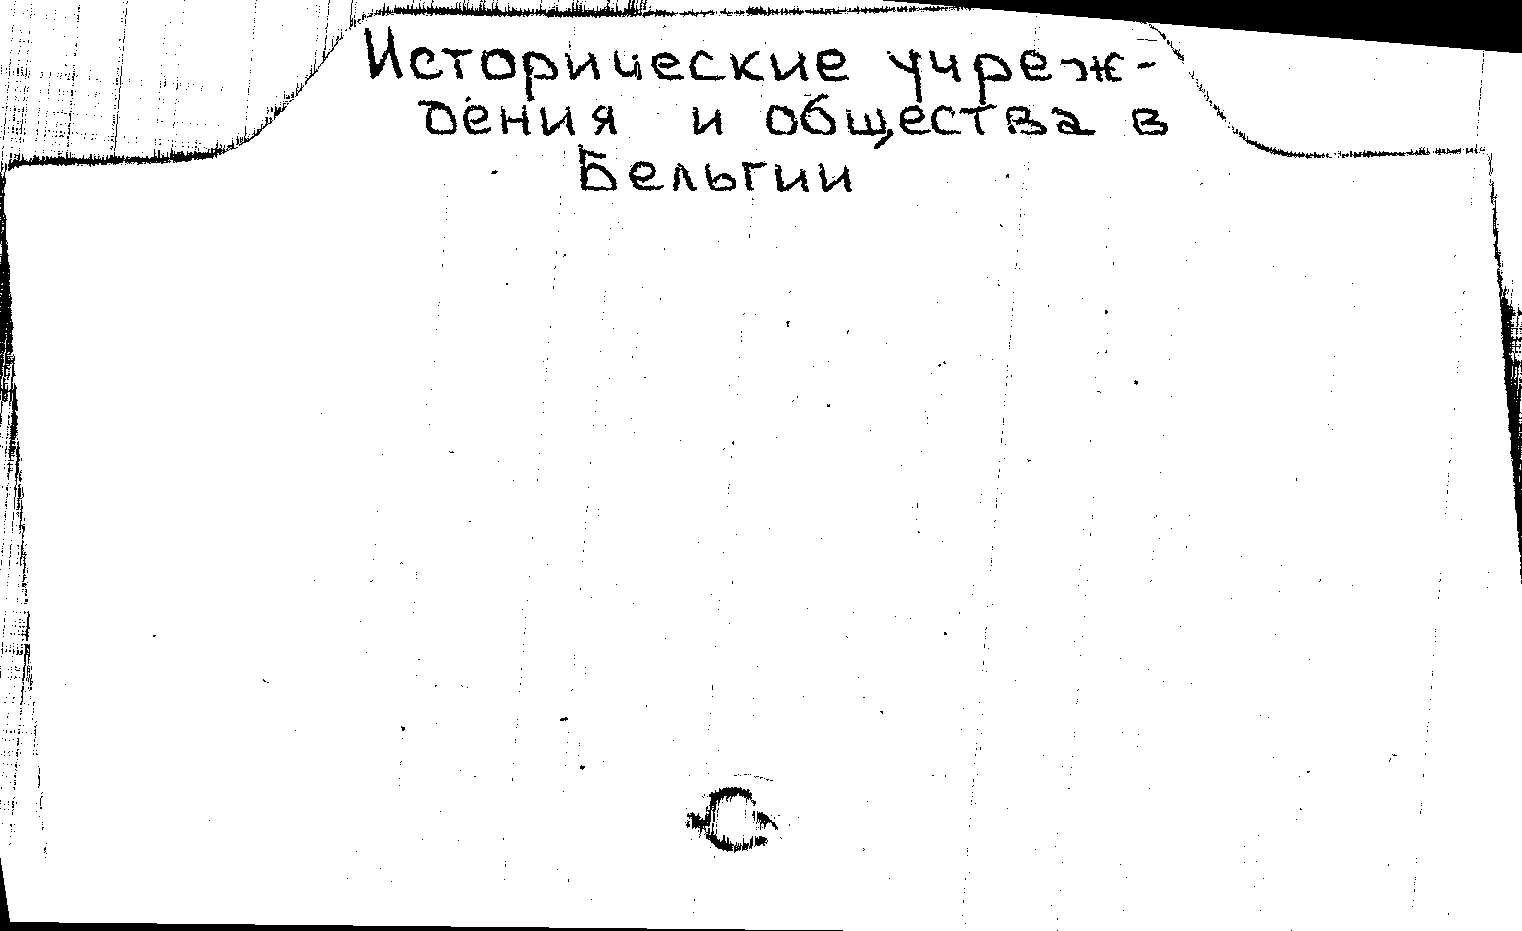 Исторические учреж-
дения и общества в
Бельгии